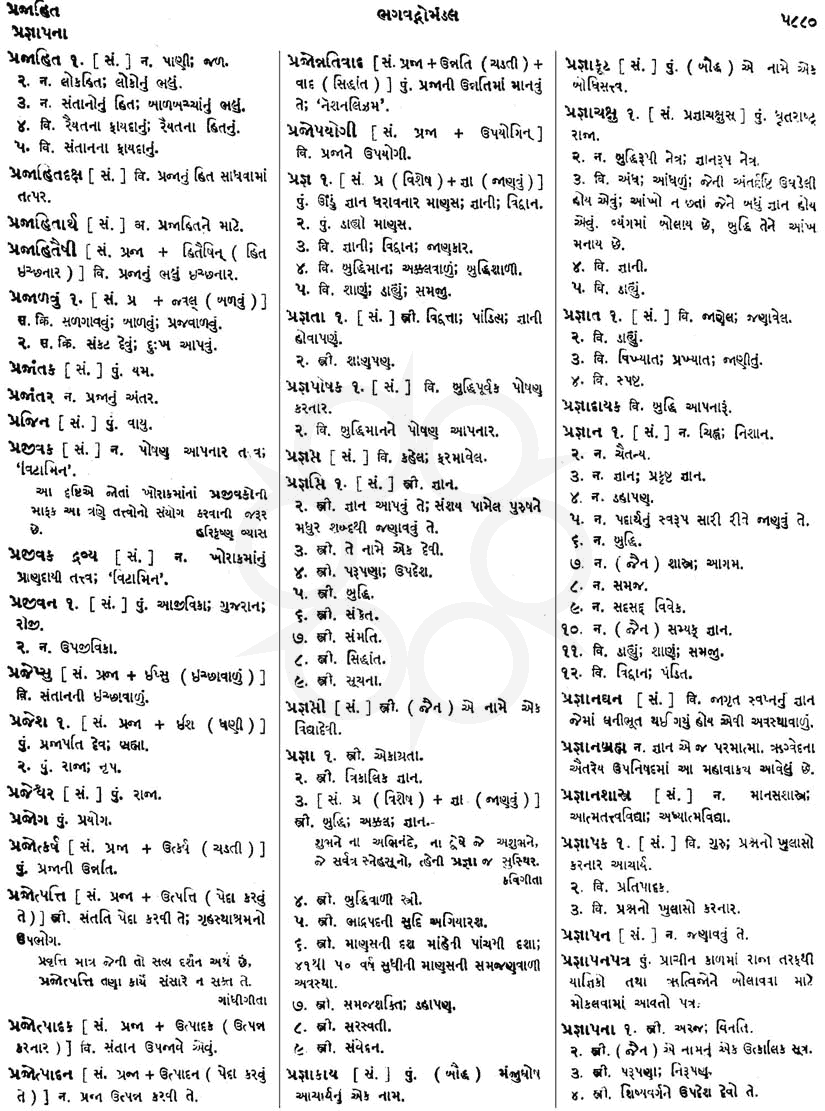 પ્રજાહિત
ભગવદ્ગોમંડલ
૫૮૮૦
પ્રજ્ઞાપના
પ્રજાહિત ૧. [ સં. ] ન. પાણી; જળ.
૨. ન. લોકહિત; લોકોનું ભલું.
૩. ન. સંતાનોનું હિત; બાળબચ્ચાંનું ભલું.
૪. વિ. રૈયતના ફાયદાનું; રૈયતના હિતનું.
૫. વિ. સંતાનના ફાયદાનું.
પ્રજાહિતદક્ષ [ સં. ] વિ. પ્રજાનું હિત સાધવામાં
તત્પર.
પ્રજાહિતાર્થે [ સં. ] અ. પ્રજાહિતને માટે.
પ્રજાહિતૈષી [ સં. પ્રજા + હિતૈષિન્ ( હિત
ઇચ્છનાર ) ] વિ. પ્રજાનું ભલું ઇચ્છનાર.
પ્રજાળવું ૧. [ સં. પ્ર + જ્વલ્ ( બળવું ) ]
સ. ક્રિ. સળગાવવું; બાળવું; પ્રજવાળવું.
૨. સ. ક્રિ. સંકટ દેવું; દુઃખ આપવું.
પ્રજાંતક [ સં. ] પું. યમ.
પ્રજાંતર ન. પ્રજાનું અંતર.
પ્રજિન [ સં. ] પું. વાયુ.
પ્રજીવક [ સં. ] ન. પોષણ આપનાર તત્વ;
‘વિટામિન’.
આ દૃષ્ટિએ જોતાં ખોરાકમાંનાં પ્રજીવકોની
માફક આ ત્રણે તત્ત્વોનો સંયોગ કરવાની જરૂર
છે. હરિકૃષ્ણ વ્યાસ
પ્રજીવક દ્રવ્ય [ સં. ] ન. ખોરાકમાંનું
પ્રાણદાયી તત્ત્વ; ‘વિટામિન’.
પ્રજીવન ૧. [ સં. ] પું. આજીવિકા; ગુજરાન;
રોજી.
૨. ન. ઉપજીવિકા.
પ્રજેપ્સુ [ સં. પ્રજા + ઈપ્સુ ( ઇચ્છાવાળું ) ]
વિ. સંતાનની ઇચ્છાવાળું.
પ્રજેશ ૧. [ સં. પ્રજા + ઈશ ( ધણી ) ]
પું. પ્રજાપતિ દેવ; બ્રહ્મા.
૨. પું. રાજા; નૃપ.
પ્રજેશ્વર [ સં. ] પું. રાજા.
પ્રજોગ પું. પ્રયોગ.
પ્રજોત્કર્ષ [ સં. પ્રજા + ઉત્કર્ષ ( ચડતી ) ]
પું. પ્રજાની ઉન્નતિ.
પ્રજોત્પત્તિ [ સં. પ્રજા + ઉત્પત્તિ ( પેદા કરવું
તે ) ] સ્ત્રી. સંતતિ પેદા કરવી તે; ગૃહસ્થાશ્રમનો
ઉપભોગ.
પ્રવૃત્તિ માત્ર જેની તો સત્ય દર્શન અર્થે છે,
પ્રજોત્પત્તિ તણા કાર્યે સંસારે ન સક્ત તે.
ગાંધીગીતા
પ્રજોત્પાદક [ સં. પ્રજા + ઉત્પાદક ( ઉત્પન્ન
કરનાર ) ] વિ. સંતાન ઉપજાવે એવું.
પ્રજોત્પાદન [ સં. પ્રજા + ઉત્પાદન ( પેદા કરવું
તે ) ] ન. પ્રજા ઉત્પન્ન કરવી તે.
પ્રજોન્નતિવાદ [ સં. પ્રજા + ઉન્નતિ ( ચડતી ) +
વાદ ( સિદ્ધાંત ) ] પું. પ્રજાની ઉન્નતિમાં માનવું
તે; ‘નેશનલિઝમ’.
પ્રજોપયોગી [ સં. પ્રજા + ઉપયોગિન્ ]
વિ. પ્રજાને ઉપયોગી.
પ્રજ્ઞ ૧. [ સં. પ્ર ( વિશેષ ) + જ્ઞા ( જાણવું ) ]
પું. ઊંડું જ્ઞાન ધરાવનાર માણસ; જ્ઞાની; વિદ્વાન.
૨. પું. ડાહ્યો માણસ.
૩. વિ. જ્ઞાની; વિદ્વાન; જાણકાર.
૪. વિ. બુદ્ધિમાન; અક્કલવાળું; બુદ્ધિશાળી.
૫. વિ. શાણું; ડાહ્યું; સમજુ.
પ્રજ્ઞતા ૧. [ સં. ] સ્ત્રી. વિદ્વત્તા; પાંડિત્ય; જ્ઞાની
હોવાપણું.
૨. સ્ત્રી. શાણપણ.
પ્રજ્ઞપોષક ૧. [ સં. ] વિ. બુદ્ધિપૂર્વક પોષણ
કરનાર.
૨. વિ. બુદ્ધિમાનને પોષણ આપનાર.
પ્રજ્ઞપ્ત [ સં. ] વિ. કહેલ; ફરમાવેલ.
પ્રજ્ઞપ્તિ ૧. [ સં. ] સ્ત્રી. જ્ઞાન.
૨. સ્ત્રી. જ્ઞાન આપવું તે; સંશય પામેલ પુરુષને
મધુર શબ્દથી જણાવવું તે.
૩. સ્ત્રી. તે નામે એક દેવી.
૪. સ્ત્રી. પરૂપણા; ઉપદેશ.
૫. સ્ત્રી. બુદ્ધિ.
૬. સ્ત્રી. સંકેત.
૭. સ્ત્રી. સંમતિ.
૮. સ્ત્રી. સિદ્ધાંત.
૯. સ્ત્રી. સૂચના.
પ્રજ્ઞપ્તી [ સં. ] સ્ત્રી. ( જૈન ) એ નામે એક
વિદ્યાદેવી.
પ્રજ્ઞા ૧. સ્ત્રી. એકાગ્રતા.
૨. સ્ત્રી. ત્રિકાલિક જ્ઞાન.
૩. [ સં. પ્ર ( વિશેષ ) + જ્ઞા ( જાણવું ) ]
સ્ત્રી. બુદ્ધિ; અક્કલ; જ્ઞાન.
શુભને ના અભિનંદે, ના દૂષે જે અશુભને,
જે સર્વત્ર સ્નેહસૂનો, ત્હેની પ્રજ્ઞા જ સુસ્થિર.
કવિગીતા
૪. સ્ત્રી. બુદ્ધિવાળી સ્ત્રી.
૫. સ્ત્રી. ભાદ્રપદની સુદિ અગિયારશ.
૬. સ્ત્રી. માણસની દશ માંહેની પાંચમી દશા;
૪૧થી ૫૦ વર્ષ સુધીની માણસની સમજણવાળી
અવસ્થા.
૭. સ્ત્રી. સમજશક્તિ; ડહાપણ.
૮. સ્ત્રી. સરસ્વતી.
૯. સ્ત્રી. સંવેદન.
પ્રજ્ઞાકાય [ સં. ] પું. ( બૌદ્ધ ) મંજુઘોષ
આચાર્યનું એક નામ.
પ્રજ્ઞાકૂટ [ સં. ] પું. ( બૌદ્ધ ) એ નામે એક
બોધિસત્ત્વ.
પ્રજ્ઞાચક્ષુ ૧. [ સં. પ્રજ્ઞાચક્ષુસ્ ] પું. ધૃતરાષ્ટ્ર
રાજા.
૨. ન. બુદ્ધિરૂપી નેત્ર; જ્ઞાનરૂપ નેત્ર.
૩. વિ. અંધ; આંધળું; જેની અંતર્દષ્ટિ ઉઘડેલી
હોય એવું; આંખો ન છતાં જેને બધું જ્ઞાન હોય
એવું. વ્યંગમાં બોલાય છે, બુદ્ધિ તેને આંખ
મનાય છે.
૪. વિ. જ્ઞાની.
૫. વિ. ડાહ્યું.
પ્રજ્ઞાત ૧. [ સં. ] વિ. જાણેલ; જણાવેલ.
૨. વિ. ડાહ્યું.
૩. વિ. વિખ્યાત; પ્રખ્યાત; જાણીતું.
૪. વિ. સ્પષ્ટ.
પ્રજ્ઞાદાયક વિ. બુદ્ધિ આપનારૂં.
પ્રજ્ઞાન ૧. [ સં. ] ન. ચિહ્ન; નિશાન.
૨. ન. ચૈતન્ય.
૩. ન. જ્ઞાન; પ્રકૃષ્ટ જ્ઞાન.
૪. ન. ડહાપણ.
૫. ન. પદાર્થનું સ્વરૂપ સારી રીતે જાણવું તે.
૬. ન. બુદ્ધિ.
૭. ન. ( જૈન ) શાસ્ત્ર; આગમ.
૮. ન. સમજ.
૯. ન. સદસદ્ વિવેક.
૧૦. ન. ( જૈન ) સમ્યક્ જ્ઞાન.
૧૧. વિ. ડાહ્યું; શાણું; સમજુ.
૧૨. વિ. વિદ્વાન; પંડિત.
પ્રજ્ઞાનઘન [ સં. ] વિ. જાગૃત સ્વપ્નનું જ્ઞાન
જેમાં ઘનીભૂત થઈ ગયું હોય એવી અવસ્થાવાળું.
પ્રજ્ઞાનબ્રહ્મ ન. જ્ઞાન એ જ પરમાત્મા. ઋગ્વેદના
ઐતરેય ઉપનિષદમાં આ મહાવાક્ય આવેલું છે.
પ્રજ્ઞાનશાસ્ત્ર [ સં. ] ન. માનસશાસ્ત્ર;
આત્મતત્ત્વવિદ્યા; અધ્યાત્મવિદ્યા.
પ્રજ્ઞાપક ૧. [ સં. ] વિ. ગુરુ; પ્રશ્નનો ખુલાસો
કરનાર આચાર્ય.
૨. વિ. પ્રતિપાદક.
૩. વિ. પ્રશ્નનો ખુલાસો કરનાર.
પ્રજ્ઞાપન [ સં. ] ન. જણાવવું તે.
પ્રજ્ઞાપનપત્ર પું. પ્રાચીન કાળમાં રાજા તરફથી
યાજ્ઞિકો તથા ઋત્વિજોને બોલાવવા માટે
મોકલવામાં આવતો પત્ર.
પ્રજ્ઞાપના ૧. સ્ત્રી. અરજ; વિનતિ.
૨. સ્ત્રી. ( જૈન ) એ નામનું એક ઉત્કાલિક સૂત્ર.
૩. સ્ત્રી. પરૂપણા; નિરૂપણ.
૪. સ્ત્રી. શિષ્યવર્ગને ઉપદેશ દેવો તે.